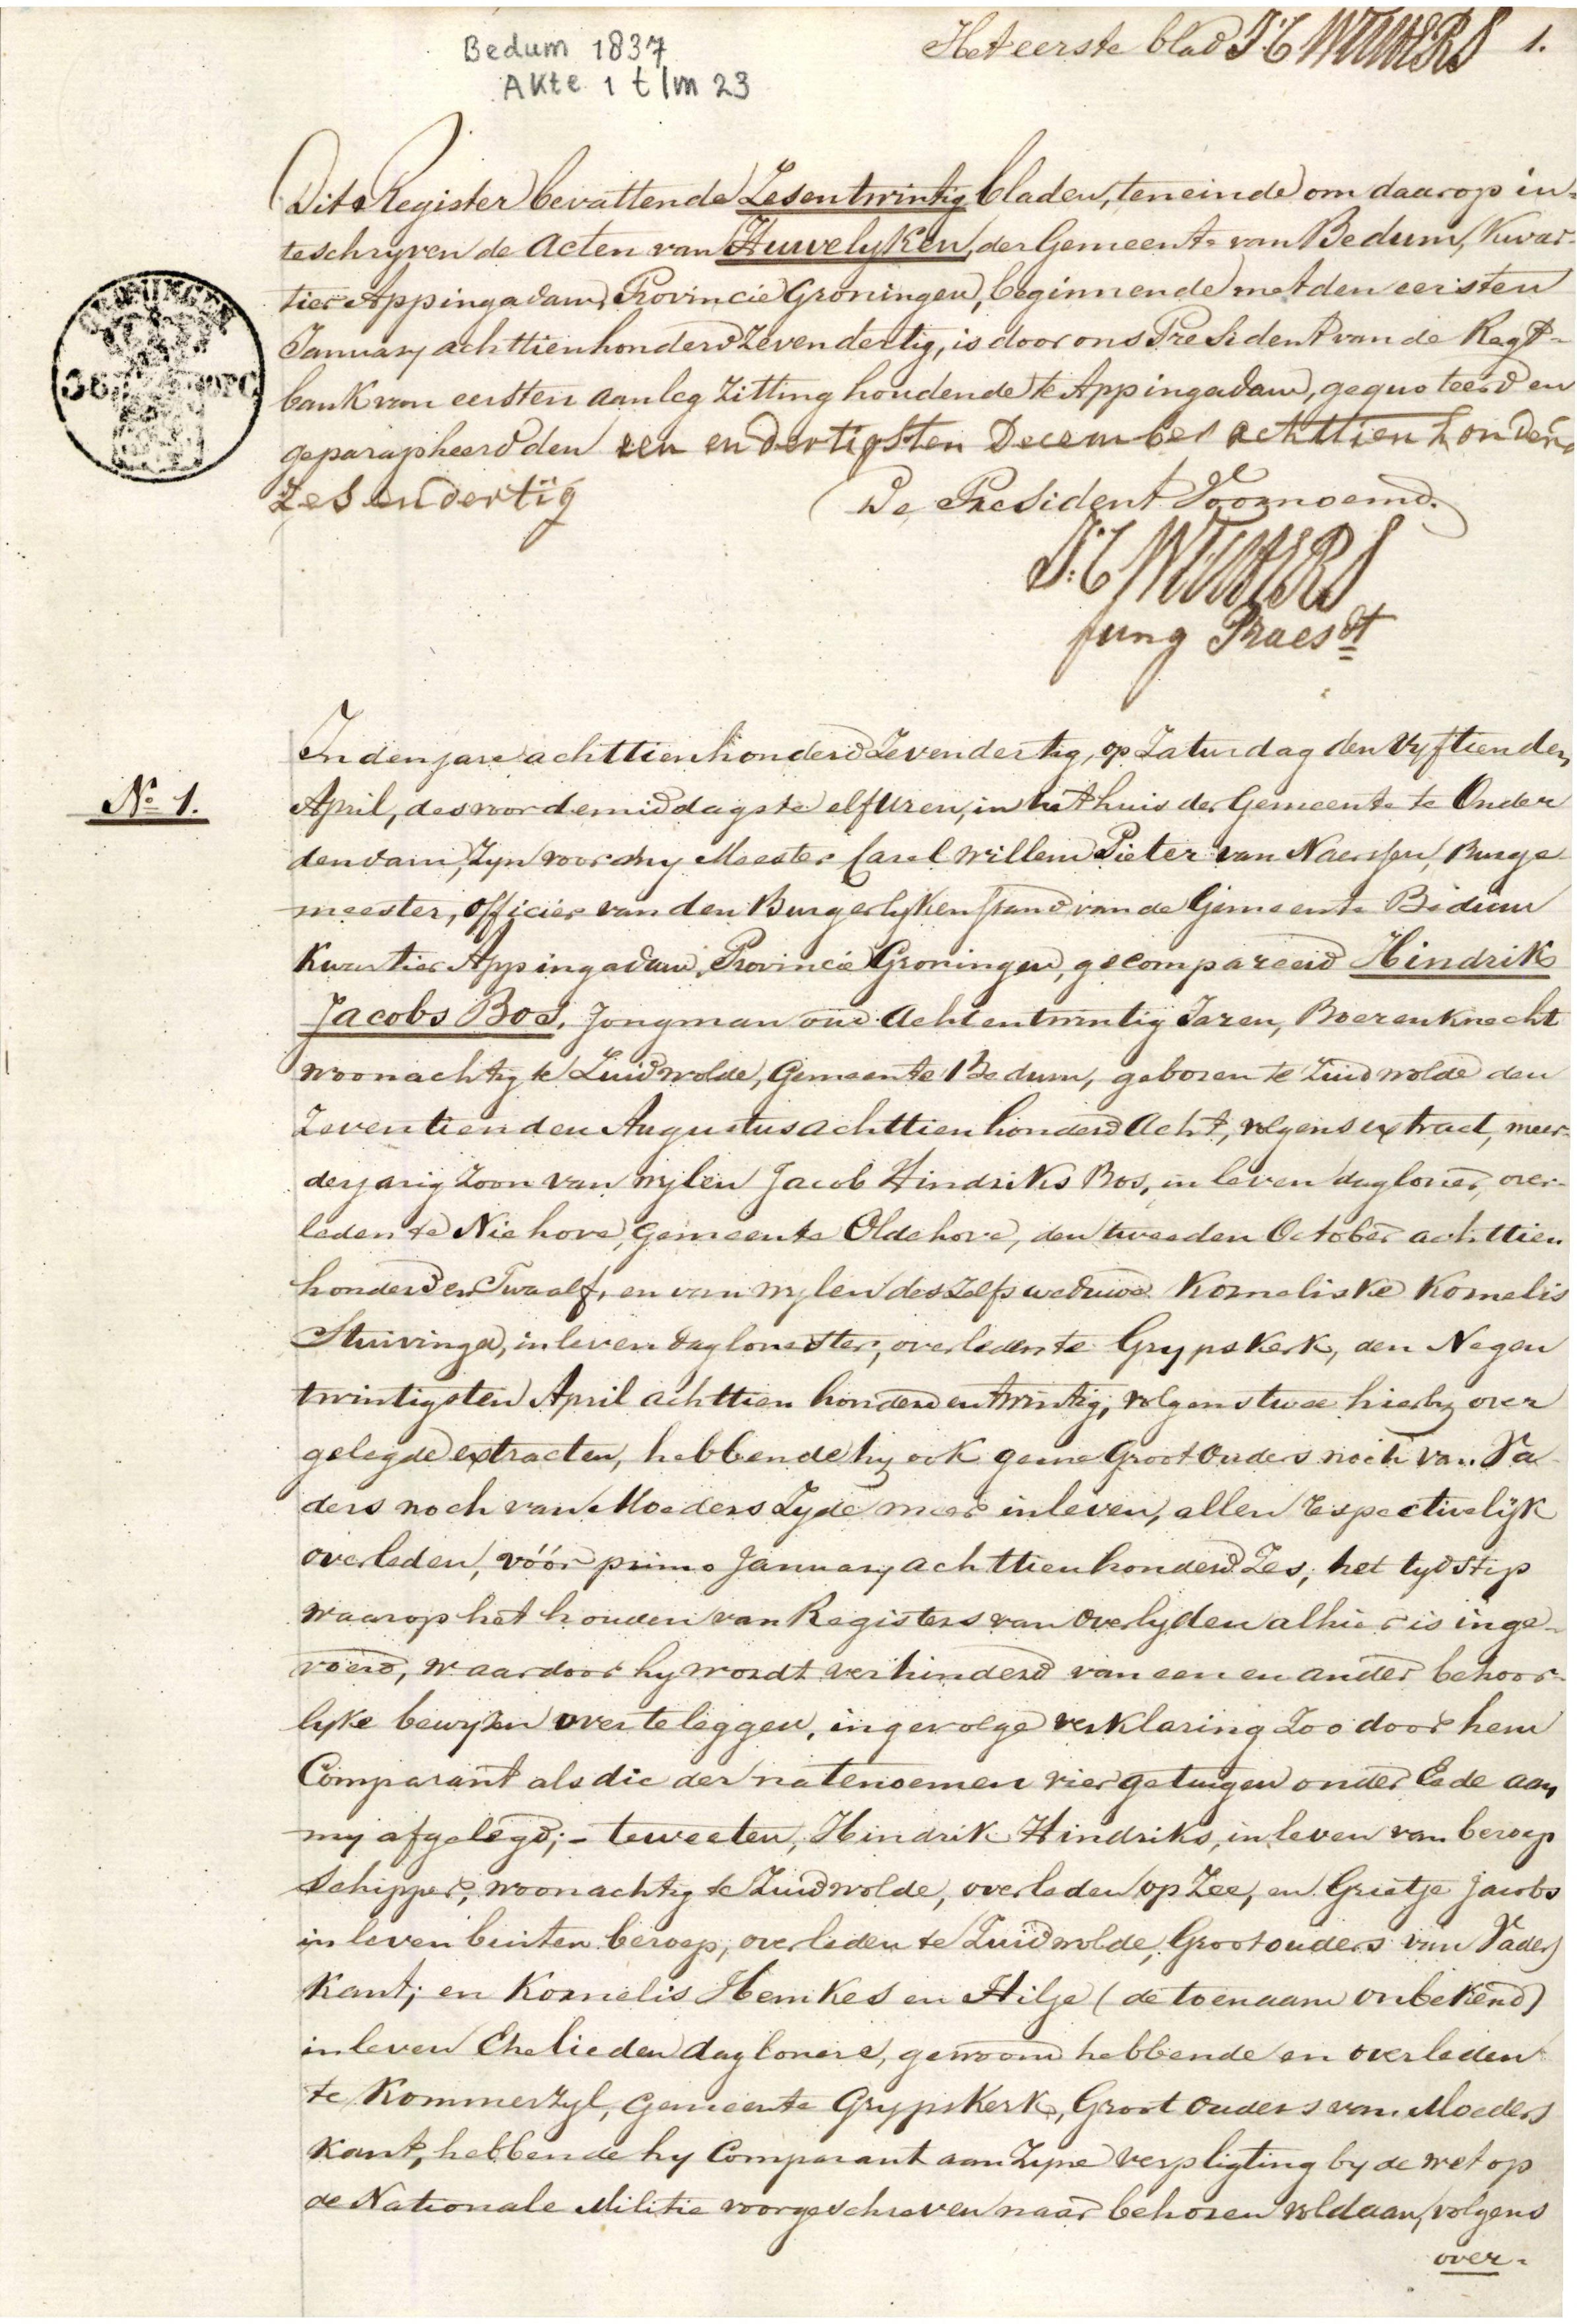 Bedum 1837
Akte 1 t/m 23
Het eerste blad J:C WOLTHERS 1.
Dit Register bevattende Zesentwintig bladen, ten einde om daarop in=
teschryven de Acten van Huwelyken, der Gemeente van Bedum, Kwar=
tier Appingadam, Provincie Groningen, beginnende met den eersten
January achttienhonderd Zevendertig, is door ons President van de Regt=
bank van eersten aanleg Zitting houdende te Appingadam, gequoteerd en
geparapheerd den een en dertigsten December achttien honderd
zes en dertig
De President Voornoemd.
J:C WOLTHERS
fung Praesdt
GRONINGEN
No 1.
In den jare achttienhonderd Zevendertig, op Zaturdag den Vyftienden
April, des voordemiddags te elf Uren, in het huis der Gemeente te Onder
dendam, Zyn voor my Meester Carel Willem Pieter van Naerssen, Burge
meester, Officier van den Burgerlyken Stand van de Gemeente Bedum
Kwartier Appingadam, Provincie Groningen, gecompareerd Hindrik
Jacobs Bos, Jongman oud Achtentwintig Jaren, Boerenknecht
woonachtig te Zuidwolde, Gemeente Bedum, geboren te Zuidwolde den
Zeventienden Augustus achttienhonderd Acht, volgens extract, meer=
derjarig Zoon van wylen Jacob Hindriks Bos, in leven dagloner, over=
leden te Niehove, Gemeente Oldehove, den tweeden October achttien
honderd en Twaalf, en van wylen deszelfs weduwe Korneliske Kornelis
Stuivinga, in leven dagloonster, overleden te Grypskerk, den Negen
twintigsten April achttien honderd en twintig, volgens twee hierby over
gelegde extracten, hebbende hy ook geene Groot Ouders noch van Va
ders noch van Moeders Zyde meer in leven, allen respectivelijk
overleden, vóór primo January achttienhonderd Zes, het tydstip
waarop het houden van Registers van Overlyden alhier is inge=
voerd, waardoor hy wordt verhinderd van een en ander behoor=
lyke bewyzen over te leggen, ingevolge verklaring Zoo door hem
Comparant als die der natenoemen vier getuigen onder Eede aan
my afgelegd;- teweeten, Hindrik Hindriks, in leven van beroep
Schipper, woonachtig te Zuidwolde, overleden op Zee, en Grietje Jacobs
in leven buiten beroep, overleden te Zuidwolde, Grootouders van Vaders
Kant; en Kornelis Hemkes en Hilje (de toenaam onbekend)
in leven Ehelieden dagloners, gewoond hebbende en overleden
te Kommerzyl, Gemeente Grypskerk, Groot Ouders van Moeders
Kant, hebbende hy Comparant aan Zyne verpligting by de wet op
de Nationale Militie voorgeschreven naar behoren voldaan, volgens
over=